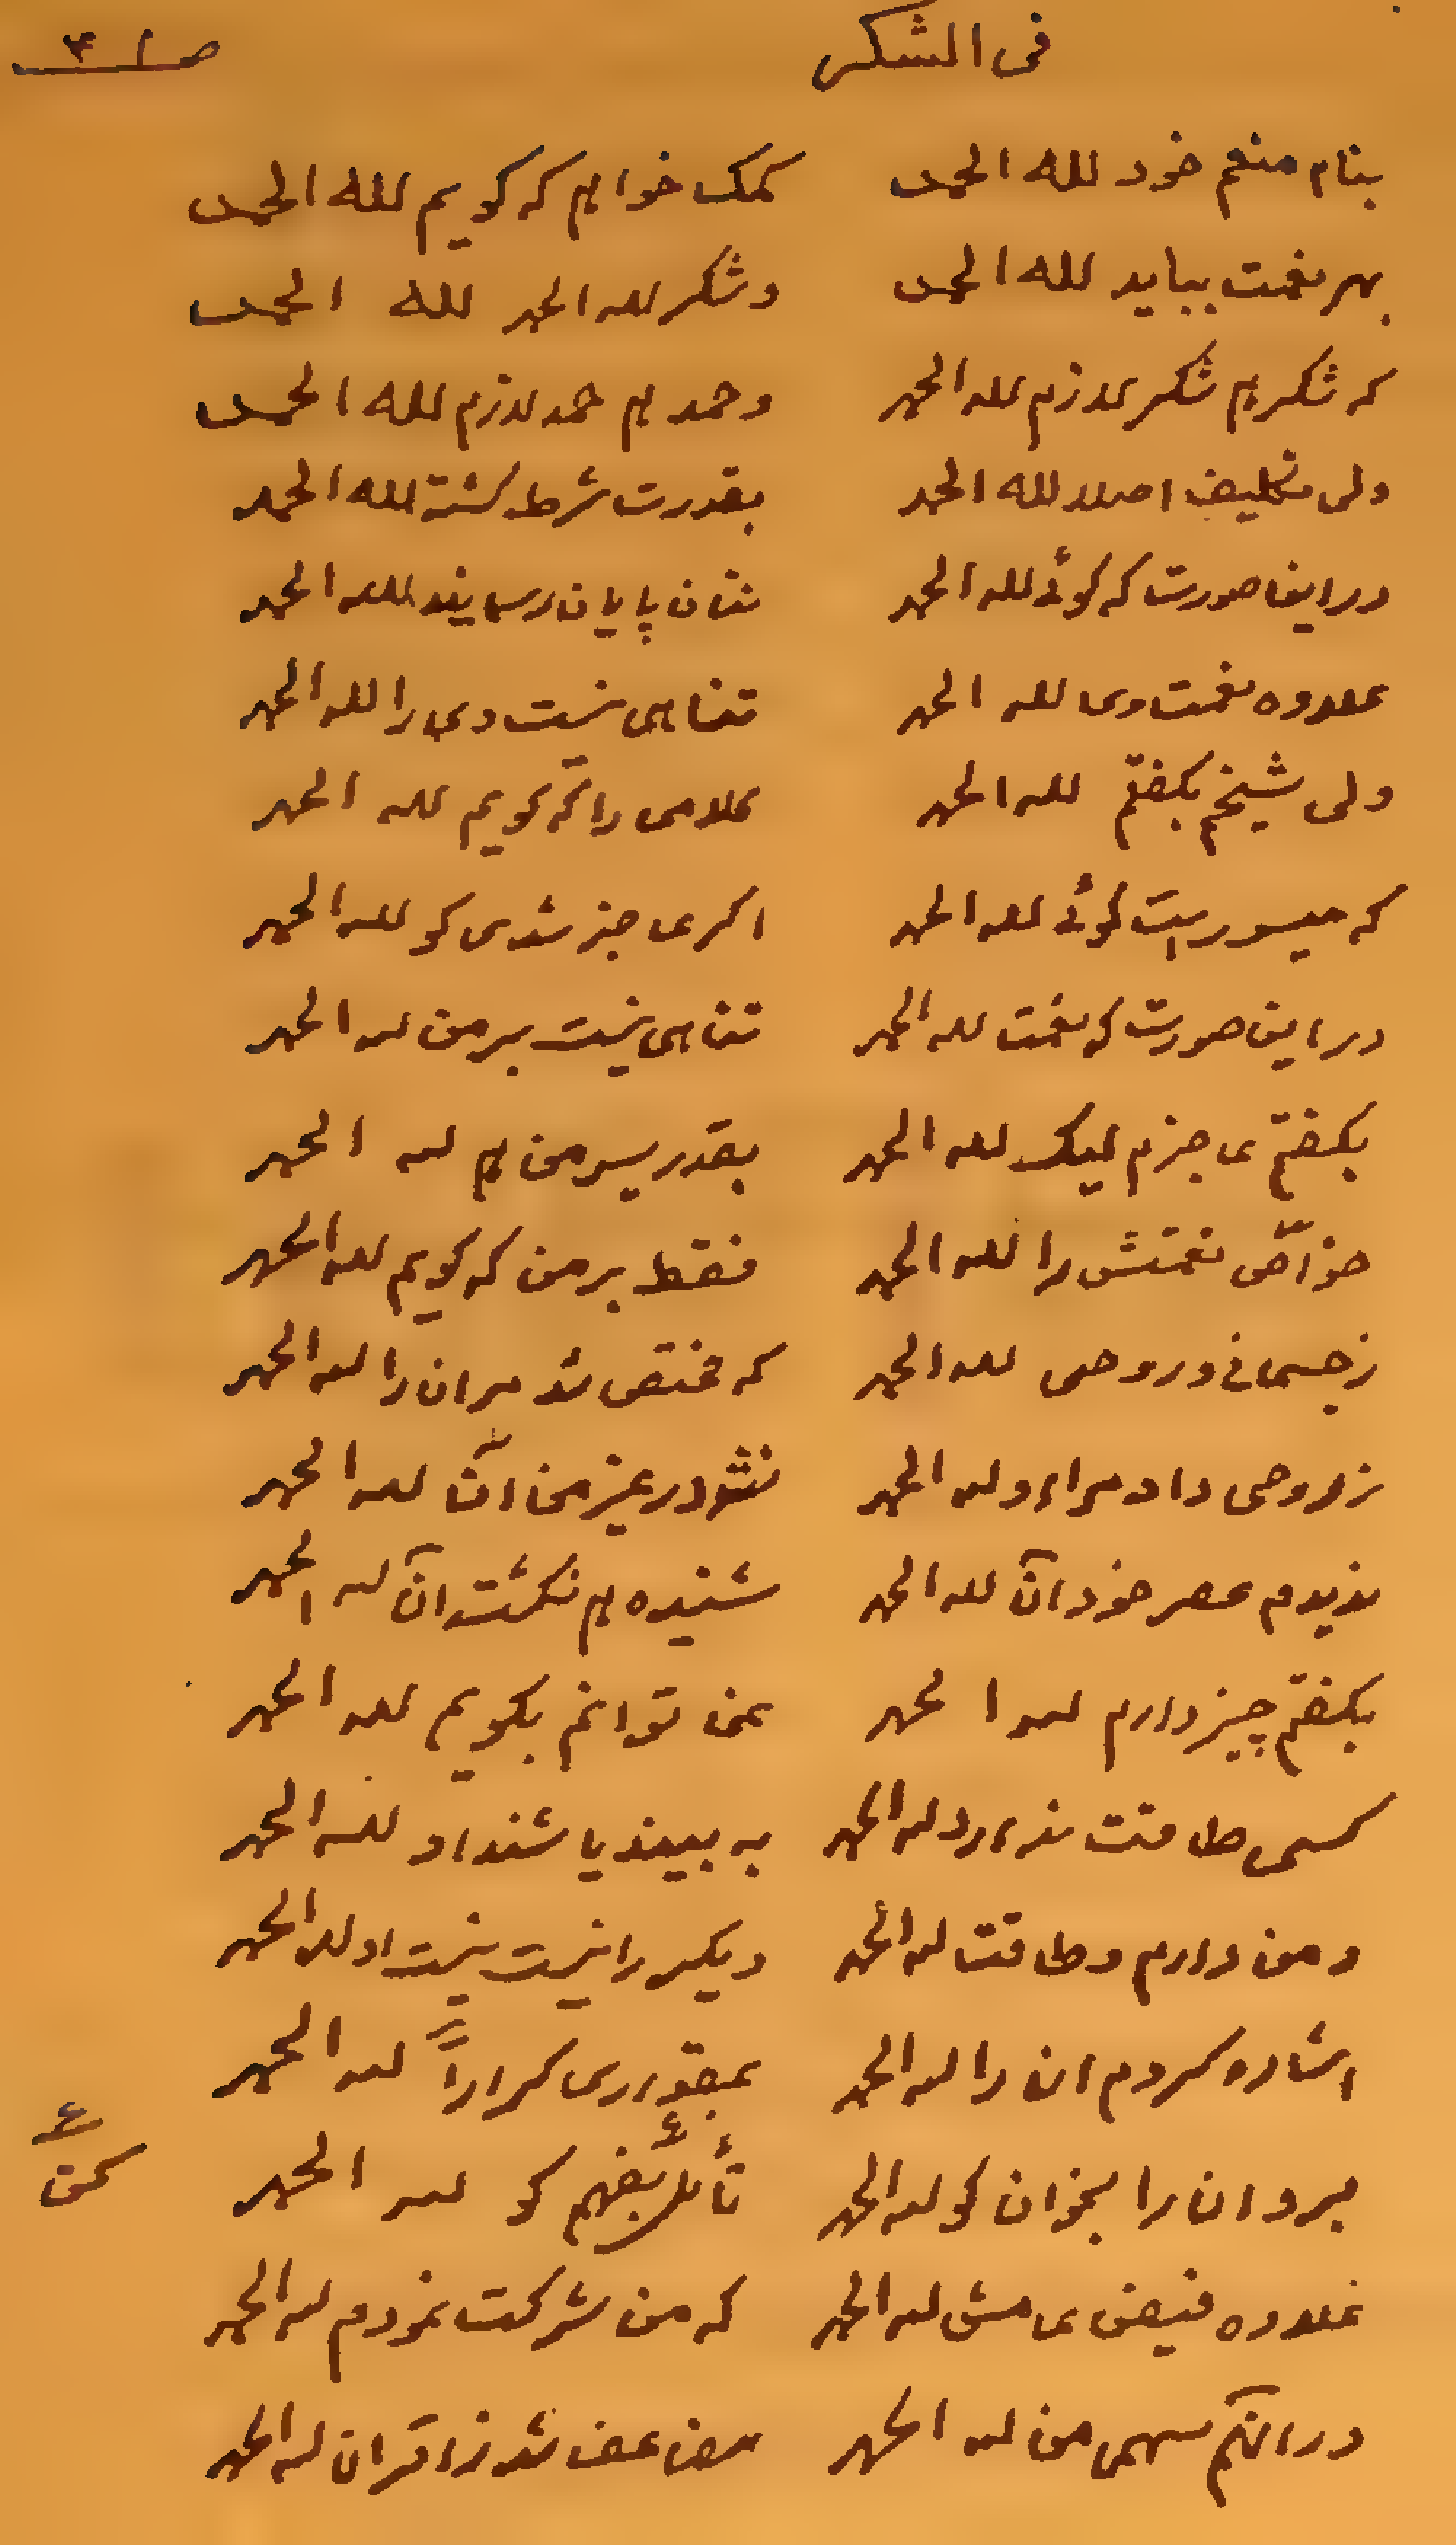 فی الشکر
ص ۱ ۴
بنام منعم خود لله الحمد کمک خواهم که کویم لله الحمد
بهر نعمت بباید لله الحمد و شکر لله الحمد لله الحمد
که شکر هم شکر لازم لله الحمد و حمد هم حمد لازم لله الحمد
ولی تکلیف اصلا لله الحمد بقدرت شرط کشته لله الحمد
در این صورت که کوئی لله الحمد نتان پایان رسانید لله الحمد
علاوه نعمت وی لله الحمد تناهی نیست وی را لله الحمد
ولی شیخم بکفتم لله الحمد کلامی را که کویم لله الحمد
که میسوریت کوئی لله الحمد اکر عاجز شدی کو لله الحمد
در این صورت که نعمت لله الحمد تناهی نیست بر من لله الحمد
بکفتم عاجزم لیک لله الحمد بقدر یسر من هم لله الحمد
خواصی نعمتش را لله الحمد فقط بر من که کویم لله الحمد
ز جسمانی و روحی لله الحمد که مختص شد مران را لله الحمد
ز روحی داد مرا او لله الحمد نشود در غیر من آن لله الحمد
ندیدم عصر خود آن لله الحمد شنیده هم نکشت آن لله الحمد
بکفتم چیز دارم لله الحمد نمی توانم بکویم لله الحمد
کسی طاقت ندارد لله الحمد به بیند یا شنداو لله الحمد
و من دارم و طاقت لله الحمد دیکر را نیست نیست او لله الحمد
اشاره کردم ان را لله الحمد کراراً لله الحمد
برو ان را بخوان کو لله الحمد تأمل بفهم کو لله الحمد
علاوه فیض عامش لله الحمد که من شرکت نمودم لله الحمد
در آنهم سهمی من لله الحمد مضاعف شد ز اقران لله الحمد